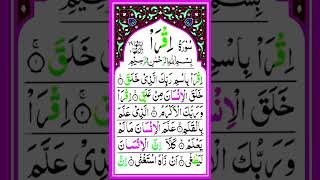 سُورَةُ اِقْرَاْ
بِسْمِ اللّٰهِ الرَّحْمٰنِ الرَّحِيْمِ
اِقْرَاْ بِاسْمِ رَبِّكَ الَّذِىْ خَلَقَ ۝
خَلَقَ الْاِنْسَانَ مِنْ عَلَقٍ ۝ اِقْرَاْ
وَرَبُّكَ الْاَكْرَمُ ۝ الَّذِىْ عَلَّمَ
بِالْقَلَمِ ۝ عَلَّمَ الْاِنْسَانَ مَا لَمْ
يَعْلَمْ ۝ كَلَّاۤ اِنَّ الْاِنْسَانَ
لَيَطْغٰٓى ۝ اَنْ رَّاٰهُ اسْتَغْنٰى ۝ اِنَّ